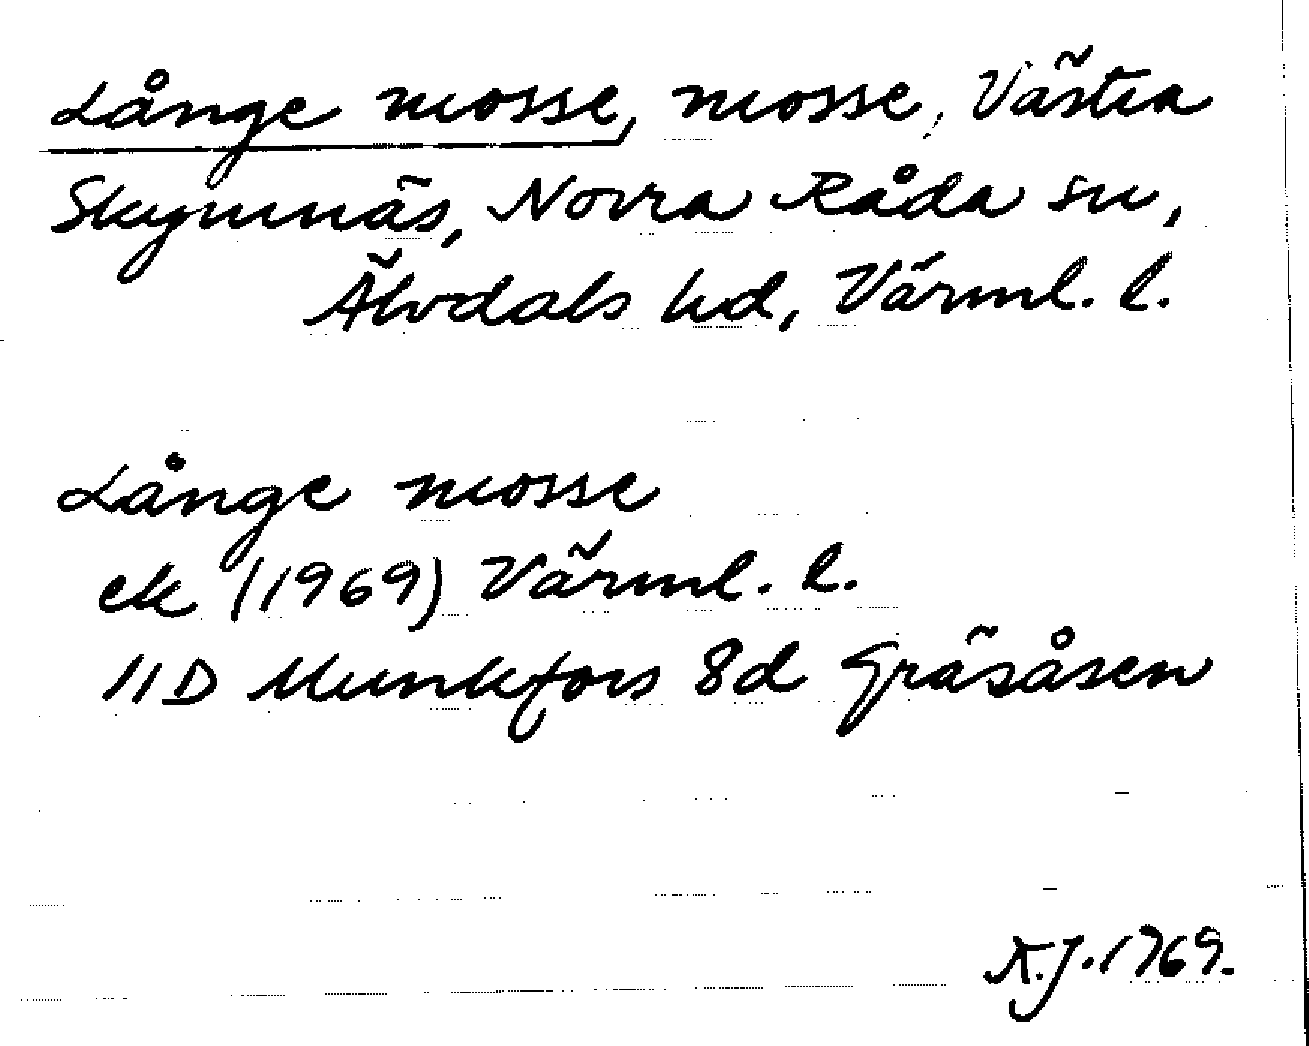 Långe mosse, mosse, Västra
Skymnäs, Norra Råda sn,
Älvdals hd, Värml. l.
Långe mosse
ek (1969) Värml. l.
11D Munkfors 8d Gräsåsen
K.J. 1969.